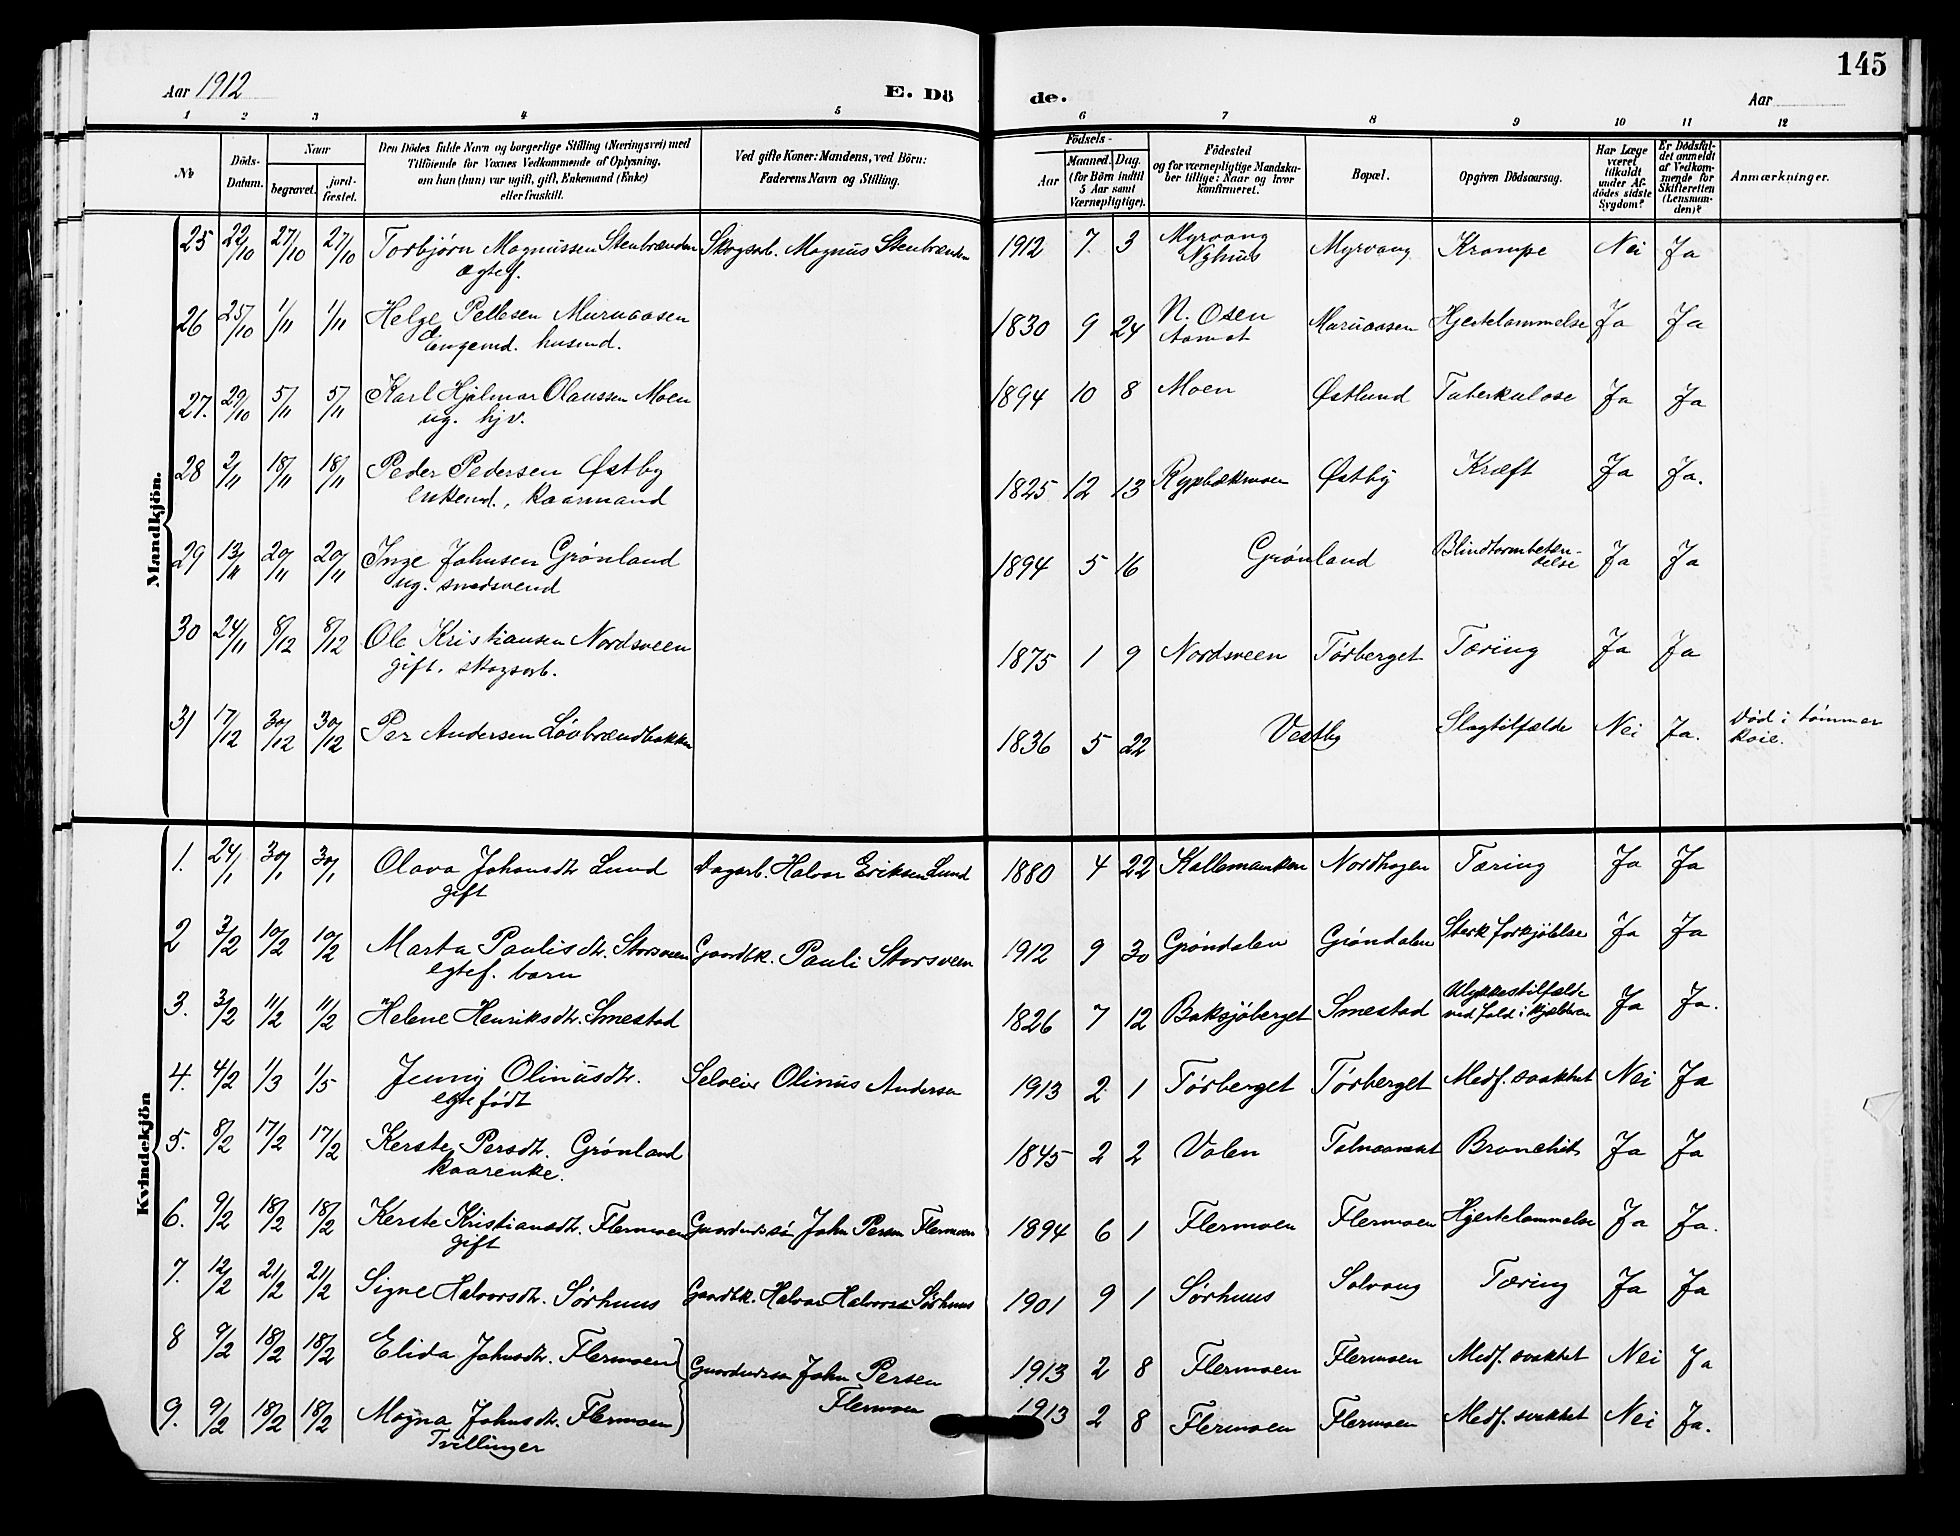 145
Aar 1912
E. Dö
de.
Aar
1 2 3 4 5 6 7 8 9 10 11 12
No
Döds-Datum.
Naar
begravet.
jord-fæstet.
Den Dödes fulde Navn og borgerlige Stilling (Næringsvei) med
Tilföiende for Voxnes Vedkommende af Oplysning,
om han (hun) var ugift, gift, Enkemand (Enke)
eller fraskilt.
Ved gifte Koner: Mandens, ved Börn:
Faderens Navn og Stilling.
Födsels-
Aar
Maaned. Dag.
(for Börn indtil
5 Aar samt
Værnepligtige).
Födested
og for værnepligtige Mandska-
ber tillige: Naar og hvor
konfirmeret.
Bopæl.
Opgiven Dödsaarsag.
Har Læge
været
tilkaldt
under Af-
dödes sidste
Sygdom?
Er Dödsfal-
det anmeldt
af Vedkom-
mende for
Skifteretten
(Lensman-
den)?
Anmærkninger.
Mandkjön.
25 22/10 27/10 27/10 Torbjørn Magnussen Stenbrænden Skogsarb. Magnus Stenbrænden 1912 7. 3 Myrvang Myrvang Krampe Nei Ja
ægtef. Nyhus
26 25/10 1/11 1/11 Helge Pellesen Muruaasen 1830 9 24 N. Osen Muruaasen Hjertelammelse Ja Ja
husmd. Aamot
27. 29/10 5/11 5/11 Karl Hjalmar Olaussen Moen 1894 10 8 Moen Østlund Tuberkulose Ja Ja
ug. hjv.
28 2/11 18/11 18/11 Peder Pedersen Østby 1825 12 13 Rypbækmoen Østby Kræft Ja Ja.
Enkemd., kaarmand
29 13/11 20/11 20/11 Inge Johnsen Grønland 1894 5 16 Grønland Blindtarmbeten-
delse Ja Ja
ug. smedsvend
30 24/11 8/12 8/12 Ole Kristiansen Nordsveen 1875 1 9 Nordsveen Tørberget Tæring Ja Ja
gift. skogsarb.
31 17/12 30/12 30/12 Per Andersen Løvbrændbakken 1836 5 22 Vestby Slagtilfælde Nei Ja. Død i tømmer
koie.
Kvindekjön
1. 24/1 30/1 30/1 Olava Johansdtr. Lund Dagarb. Halvor Eriksen Lund 1880 4 22 Kallemanken Nordhagen Tæring Ja Ja
gift
2 3/2 10/2 10/2 Marta Paulisdtr. Storsveen Gaardbk. Pauli Storsveen 1912 9 30 Grøndalen Grøndalen Sterk forkjølelse Ja Ja
egtef. barn
3. 3/2 11/2 11/2 Helene Henriksdtr. Smestad 1826 7 12 Baksjøberget Smestad Ulykkestilfælde
ved fald i kjælderen Ja Ja.
4. 4/2 1/3 1/5 Jenny Olinusdtr. Selveier Olinus Andersen 1913 2 1 Tørberget Tørberget Medf. svakhet Nei Ja
egtefødt
5. 8/2 17/2 17/2 Kerste Persdtr. Grønland 1845 2 2 Volen Bronchit Ja Ja
kaarenke.
6. 9/2 18/2 18/2 Kerste Kristiansdtr. Flermoen John Persen Flermoen 1894 6 1 Flermoen Flermoen Hjertelammelse Ja Ja.
gift
7. 12/2 21/2 21/2 Signe Halvorsdtr. Sørhuus Gaardbk. Halvor Halvorsen Sørhuus 1901 9 1 Sørhuus Solvang Tæring Ja Ja
8 9/2 18/2 18/2 Elida Johnsdtr. Flermoen John Persen 1913 2 8 Flermoen Flermoen Medf. svakhet Nei Ja
Flermoen
9. 9/2 18/2 18/2 Magna Johnsdtr. Flermoen 1913 2 8 Flermoen Flermoen Medf. svakhet Nei Ja.
Tvillinger